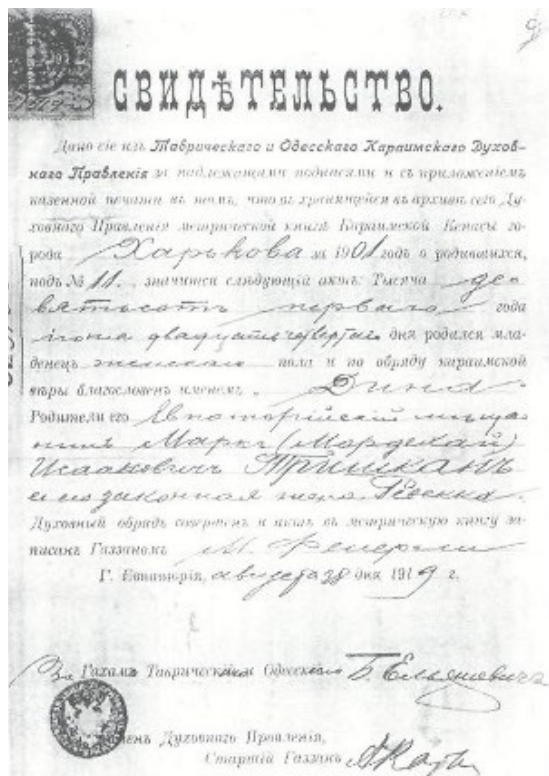 СВИДѢТЕЛЬСТВО.
Дано сіе изъ Таврическаго и Одесскаго Караимскаго Духов-
наго Правленія за надлежащими подписями и съ приложеніемъ
казенной печати въ томъ, что въ хранящейся въ архивѣ сего Ду-
ховнаго Правленія метрической книгѣ Караимской Кенасы го-
рода Харькова за 1901 годъ о родившихся,
подъ № 11. значится слѣдующій актъ: Тысяча де-
вятьсотъ перваго года
двадцать четвертаго дня родился мла-
денецъ женскаго пола и по обряду караимской
вѣры благословенъ именемъ „Дина“
Родители его Евпаторійскій мѣща-
нинъ Маркъ (Мордехай)
Исааковичъ Тришканъ
и его законная жена Ревекка.
Духовный обрядъ совершенъ и актъ въ метрическую книгу за-
писанъ Газзаномъ
Г. Евпаторія, августа 28 дня 1919 г.
За Гахама Таврическаго и Одесскаго Б. Ельяшевичъ
Членъ Духовнаго Правленія,
Старшій Газзанъ